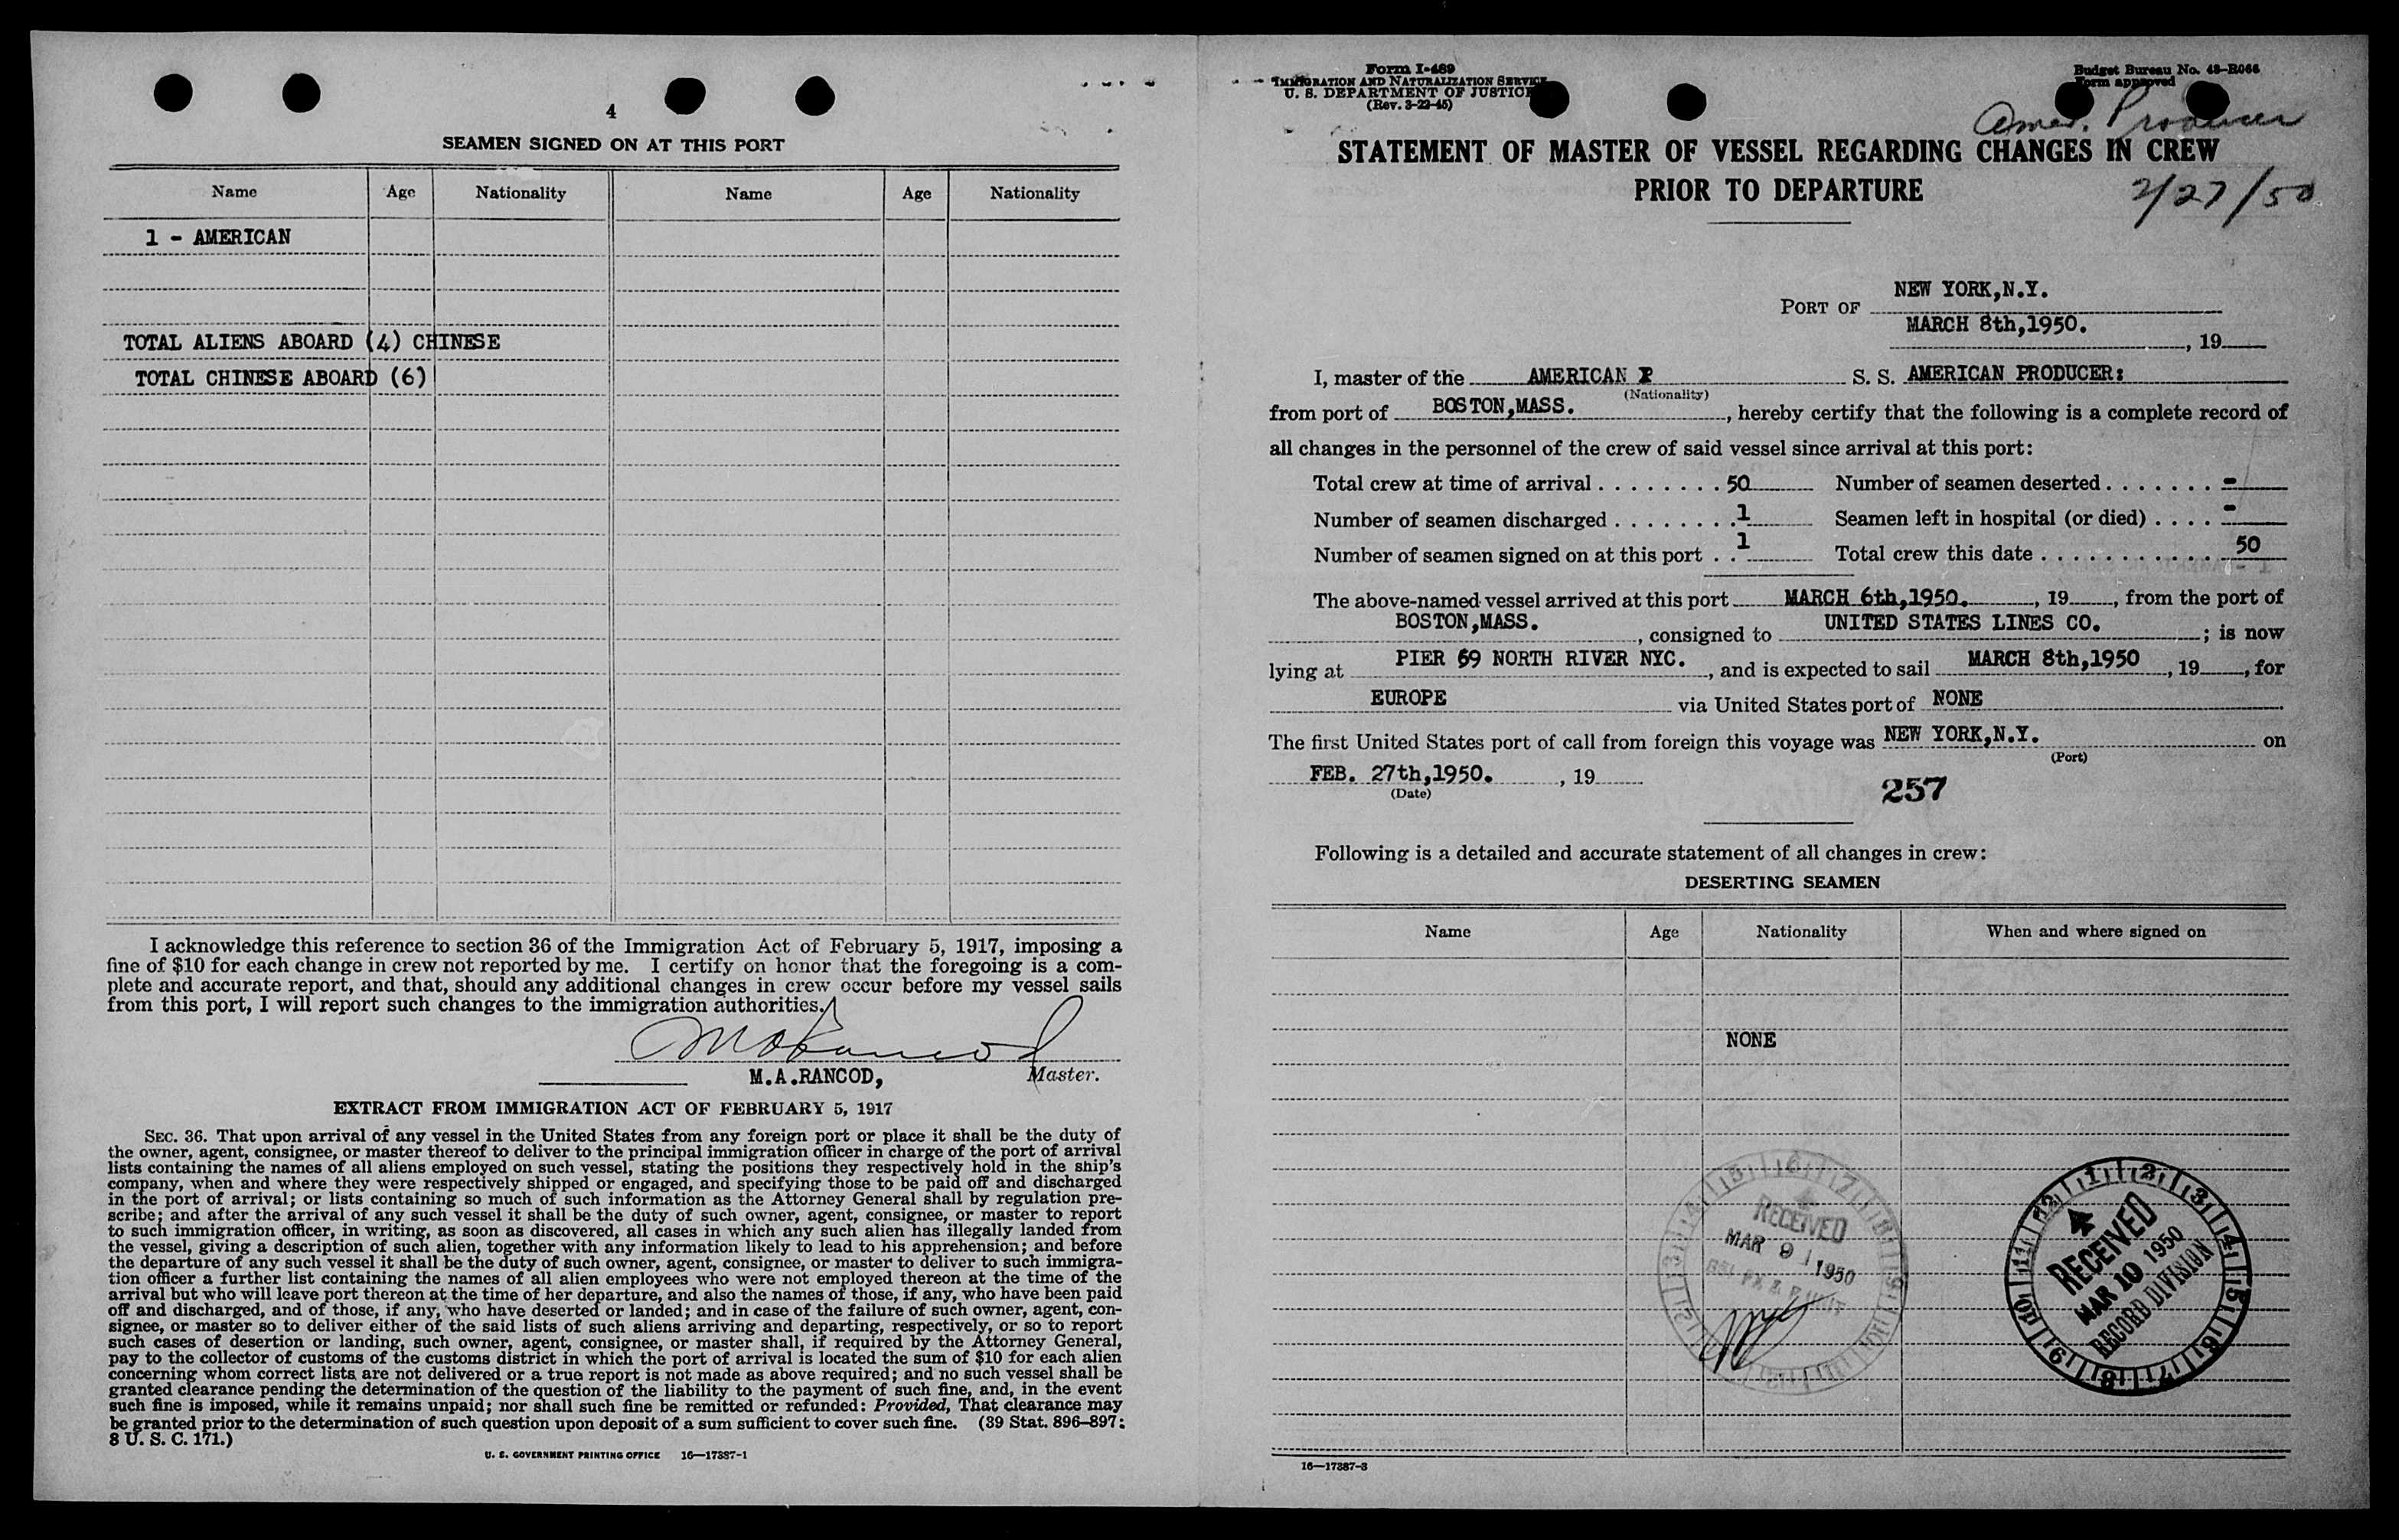 4
SEAMEN SIGNED ON AT THIS PORT
Name Age Nationality Name Age Nationality
1 - AMERICAN
TOTAL ALIENS ABOARD (4) CHINESE
TOTAL CHINESE ABOARD (6)
I acknowledge this reference to section 36 of the Immigration Act of February 5, 1917, imposing a
fine of $10 for each change in crew not reported by me. I certify on honor that the foregoing is a com-
plete and accurate report, and that, should any additional changes in crew occur before my vessel sails
from this port, I will report such changes to the immigration authorities.
M.A.RANCOD, Master.
EXTRACT FROM IMMIGRATION ACT OF FEBRUARY 5, 1917
SEC. 36. That upon arrival of any vessel in the United States from any foreign port or place it shall be the duty of
the owner, agent, consignee, or master thereof to deliver to the principal immigration officer in charge of the port of arrival
lists containing the names of all aliens employed on such vessel, stating the positions they respectively hold in the ship's
company, when and where they were respectively shipped or engaged, and specifying those to be paid off and discharged
in the port of arrival; or lists containing so much of such information as the Attorney General shall by regulation pre-
scribe; and after the arrival of any such vessel it shall be the duty of such owner, agent, consignee, or master to report
to such immigration officer, in writing, as soon as discovered, all cases in which any such alien has illegally landed from
the vessel, giving a description of such alien, together with any information likely to lead to his apprehension; and before
the departure of any such vessel it shall be the duty of such owner, agent, consignee, or master to deliver to such immigra-
tion officer a further list containing the names of all alien employees who were not employed thereon at the time of the
arrival but who will leave port thereon at the time of her departure, and also the names of those, if any, who have been paid
off and discharged, and of those, if any, who have deserted or landed; and in case of the failure of such owner, agent, con-
signee, or master so to deliver either of the said lists of such aliens arriving and departing, respectively, or so to report
such cases of desertion or landing, such owner, agent, consignee, or master shall, if required by the Attorney General,
pay to the collector of customs of the customs district in which the port of arrival is located the sum of $10 for each alien
concerning whom correct lists are not delivered or a true report is not made as above required; and no such vessel shall be
granted clearance pending the determination of the question of the liability to the payment of such fine, and, in the event
such fine is imposed, while it remains unpaid; nor shall such fine be remitted or refunded: Provided, That clearance may
be granted prior to the determination of such question upon deposit of a sum sufficient to cover such fine. (39 Stat. 896-897;
8 U. S. C. 171.)
U. S. GOVERNMENT PRINTING OFFICE 16—17387-1
Form I-489
IMMIGRATION AND NATURALIZATION SERVICE
U. S. DEPARTMENT OF JUSTICE
(Rev. 3-22-45)
Budget Bureau No. 43-R066
Form approved
Amer. Producer
STATEMENT OF MASTER OF VESSEL REGARDING CHANGES IN CREW
PRIOR TO DEPARTURE
2/27/50
PORT OF NEW YORK,N.Y.
MARCH 8th,1950. , 19
I, master of the AMERICAN P S. S. AMERICAN PRODUCER:
(Nationality)
from port of BOSTON,MASS. , hereby certify that the following is a complete record of
all changes in the personnel of the crew of said vessel since arrival at this port:
Total crew at time of arrival . . . . . . . . 50 Number of seamen deserted . . . . . . . -
Number of seamen discharged . . . . . . . . 1 Seamen left in hospital (or died) . . . . -
Number of seamen signed on at this port . . 1 Total crew this date . . . . . . . . . . . . 50
The above-named vessel arrived at this port MARCH 6th,1950. , 19 , from the port of
BOSTON,MASS. , consigned to UNITED STATES LINES CO. ; is now
lying at PIER 59 NORTH RIVER NYC. , and is expected to sail MARCH 8th,1950 , 19 , for
EUROPE via United States port of NONE .
The first United States port of call from foreign this voyage was NEW YORK,N.Y. on
(Port)
FEB. 27th,1950. , 19
(Date)
257
Following is a detailed and accurate statement of all changes in crew:
DESERTING SEAMEN
Name Age Nationality When and where signed on
NONE
RECEIVED
MAR 9 1950
RECEIVED
MAR 10 1950
RECORD DIVISION
16—17387-3